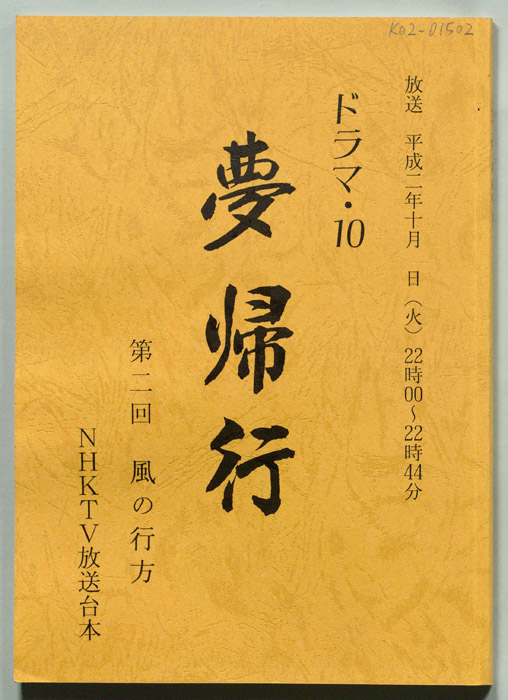 K02-01502
放送　平成二年十月　日（火）22時00〜22時44分
ドラマ・10
夢帰行
第二回　風の行方
NHKTV放送台本